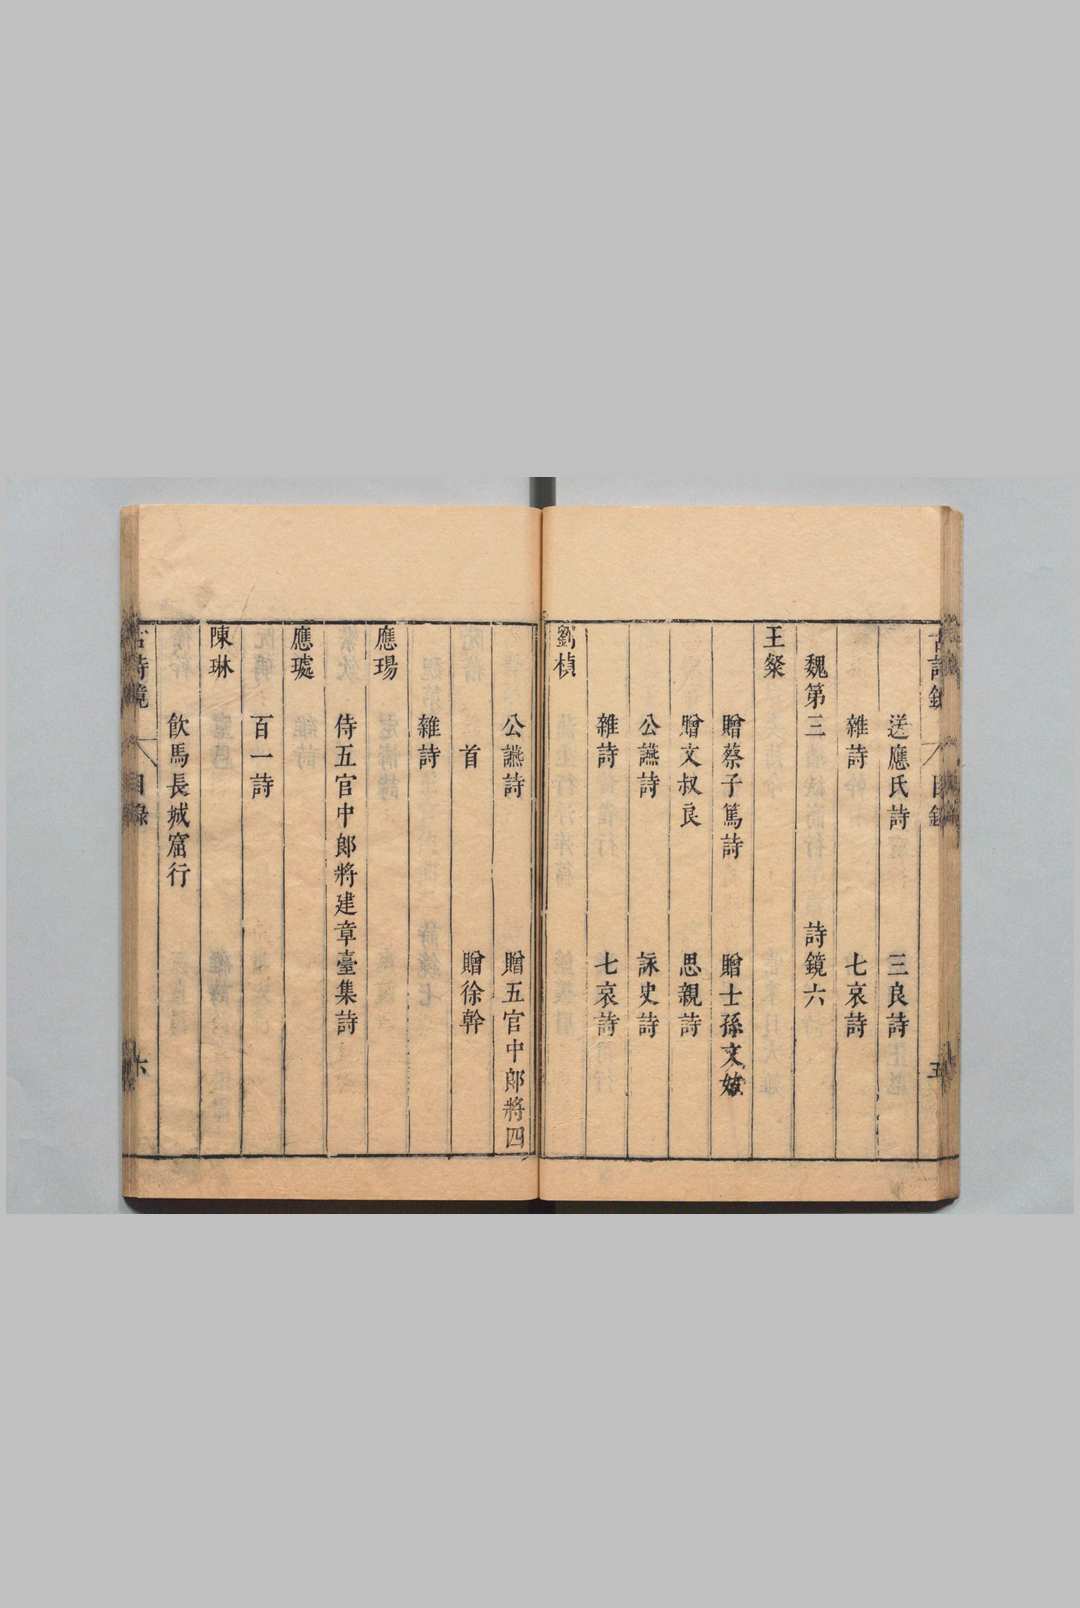 古詩鏡 目錄 五
送應氏詩 三良詩
雜詩 七哀詩
魏第三 詩鏡六
王粲
贈蔡子篤詩 贈士孫文始
贈文叔良 思親詩
公讌詩 詠史詩
雜詩 七哀詩
劉楨
公讌詩 贈五官中郎將四
首 贈徐幹
雜詩
應瑒
侍五官中郎將建章臺集詩
應璩
百一詩
陳琳
飲馬長城窟行
古詩鏡 目錄 六